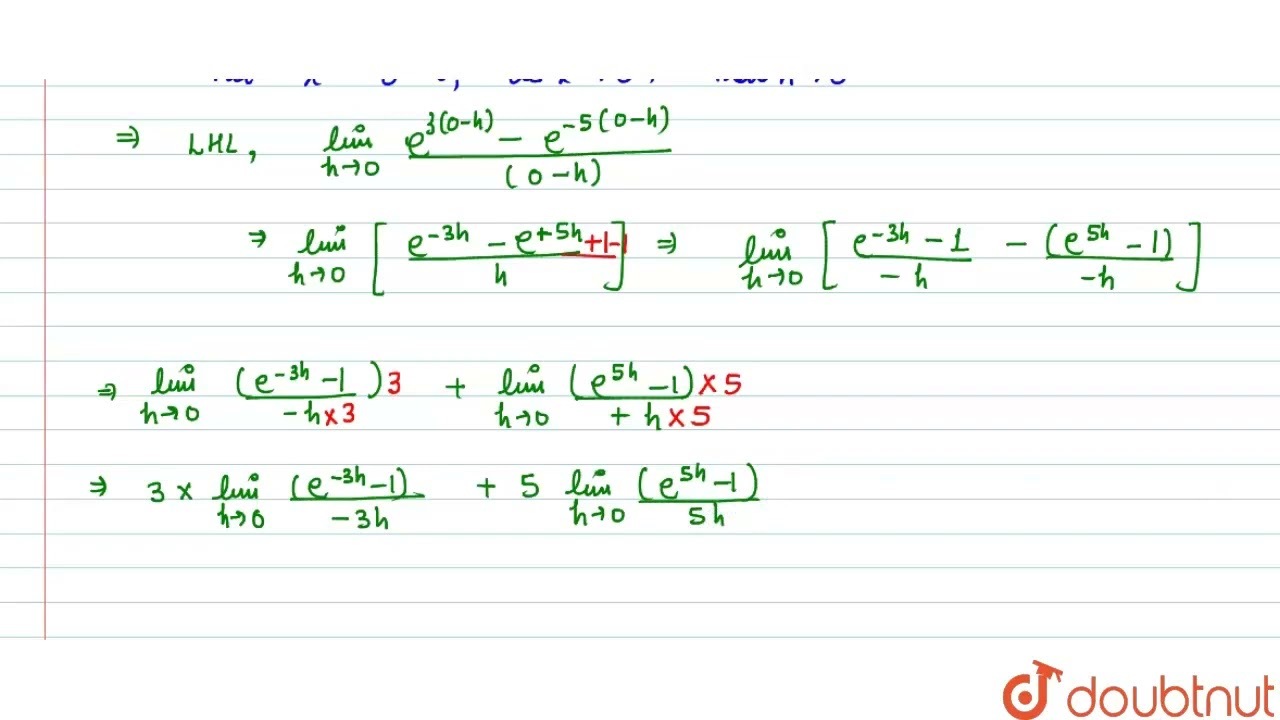 ⇒ LHL, lim h→0 e^3(0-h) - e^-5(0-h) / (0-h)
⇒ lim h→0 [ e^-3h - e^+5h +1-1 / h ] ⇒ lim h→0 [ e^-3h - 1 / -h - (e^5h - 1) / -h ]
⇒ lim h→0 (e^-3h - 1)3 / -h×3 + lim h→0 (e^5h - 1)×5 / +h×5
⇒ 3 × lim h→0 (e^-3h - 1) / -3h + 5 lim h→0 (e^5h - 1) / 5h
doubtnut